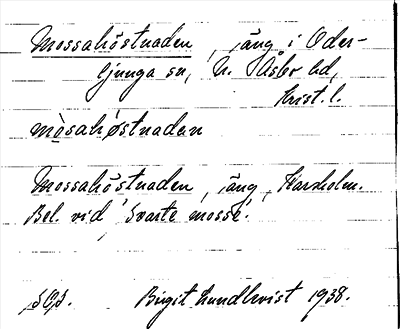 Mossahöstnaden, äng i Oder-
ljunga sn, N. Åsbo hd,
Krist. l.
mòsahøstnaden
Mossahöstnaden, äng, Harholm.
Bel. vid 'Svarte mosse'.
Birgit Lundkvist 1938.